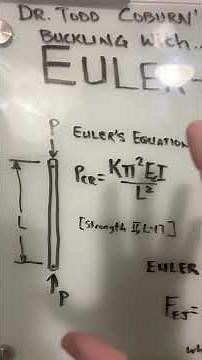 DR. TODD COBURN'
BUCKLING WITH..
EULER-
P
EULER'S EQUATION
P_CR = Kπ²EI / L²
L
[Strength II, L-17]
P
EULER
F_EJ =